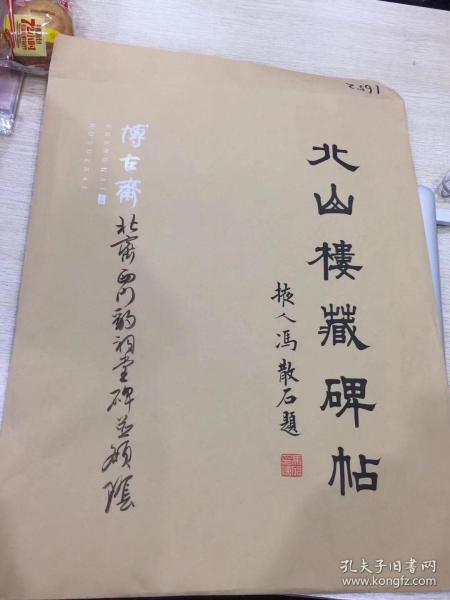 北山樓藏碑帖
掖人馮散石題
博古齋
SHANGHAI
BOGUZHAI
北齊西門豹祠堂碑並額陰
1652
孔夫子旧书网
www.kongfz.com